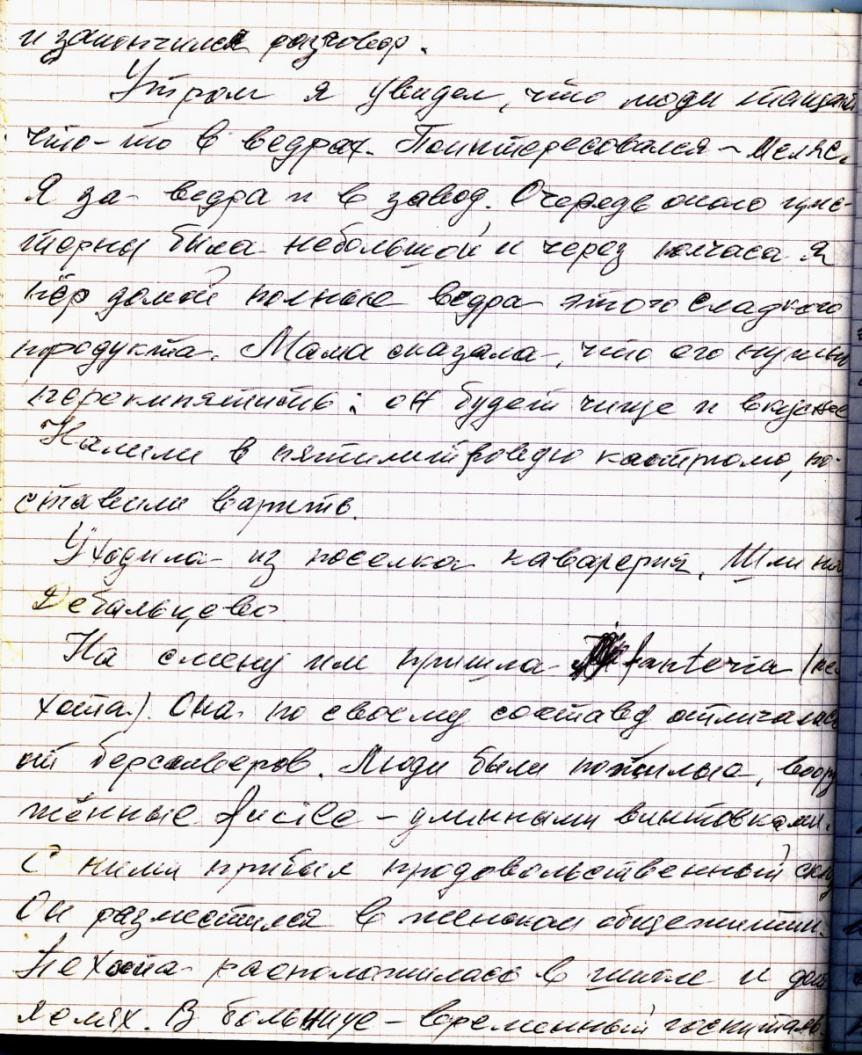 и закончился разговор.
Утром я увидел, что люди тащат
что-то в ведрах. Поинтересовался - меляс.
Я за- ведра и в завод. Очередь около цис-
терны была небольшой и через полчаса я
пёр домой полные ведра этого сладкого
продукта. Мама сказала, что его нужно
перекипятить: он будет чище и вкуснее
Налили в пятилитровую кастрюлю, по-
ставили варить.
Уходила из поселка кавалерия. Шли на
Дебальцево.
На смену им пришла fanteria (пе-
хота). Она по своему составу отличалась
от берсальеров. Люди были пожилые, воору
жённые fucile - длинными винтовками.
С ними прибыл продовольственный склад
Он разместился в женском общежитии.
Пехота расположилась в школе и до
домях. В больнице - временный госпиталь.